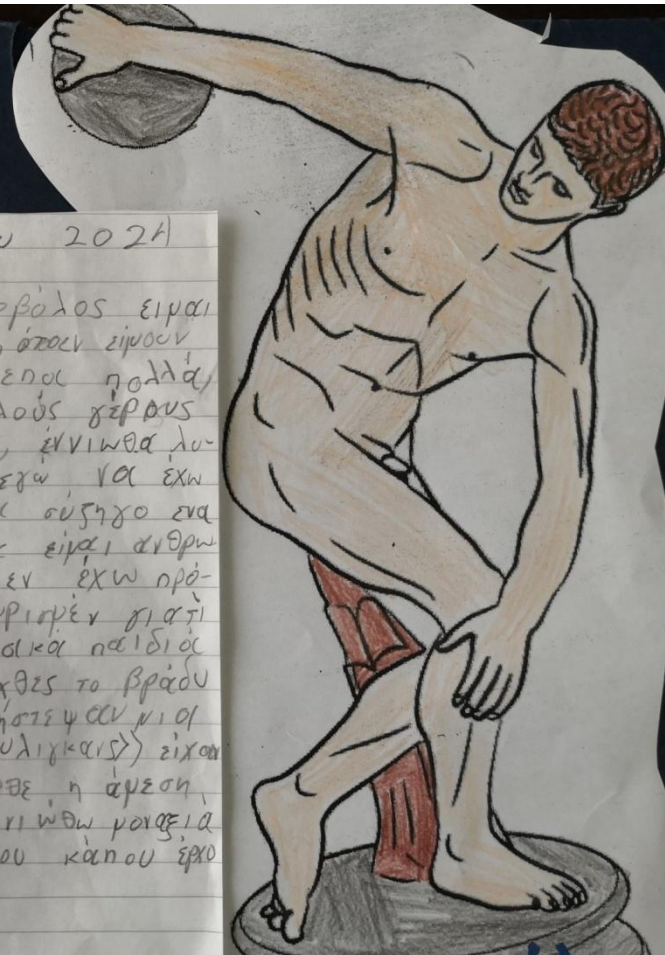 υ 2021
οβόλος ειμαι
, όποιν είμουν
έποι πολλά,
λούς γέρους
, έννιωθα λυ-
εγώ να έχω
σύζηγο ενα
ειμαι ανθρω
εν έχω πρό-
ρισμέν γιατί
σικά παιδιά
χθες το βράδυ
ήστεψαν μια
υλιγκανς>> είχαν
θε η άμεση
νιώθω μοναξιά
ου κάπου έρχο